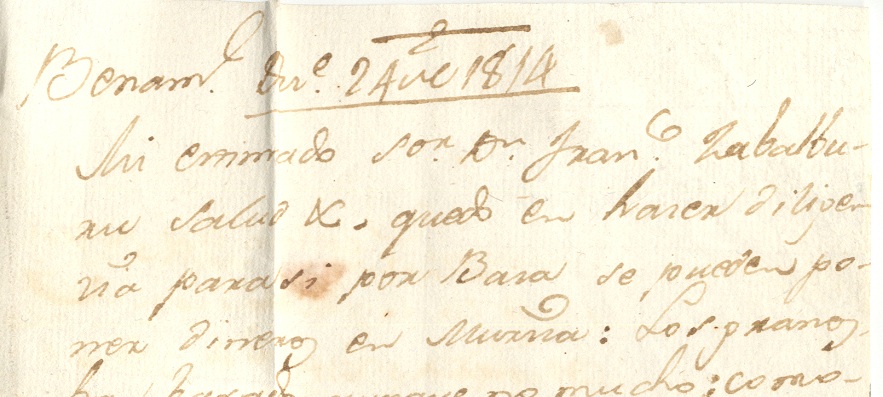 Benam.l En.e 24 de 1814
Mi estimado Sor. Dn. Fran.co Zabalbu-
ru salud &. quedo en hacer diligen
cia para si por Baza se pueden po-
ner dineros en Murcia: Los granos
no mucho: como-